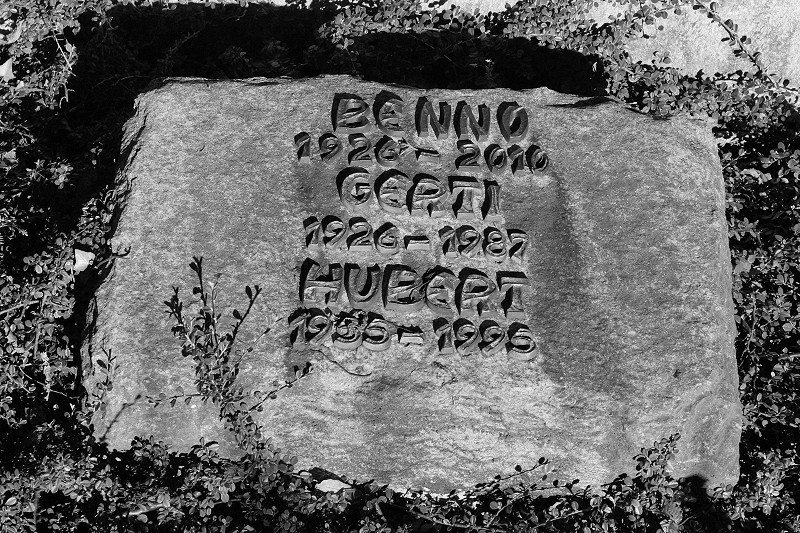 BENNO
1926 - 2010
GERTI
1926 - 1987
HUBERT
1935 - 1996